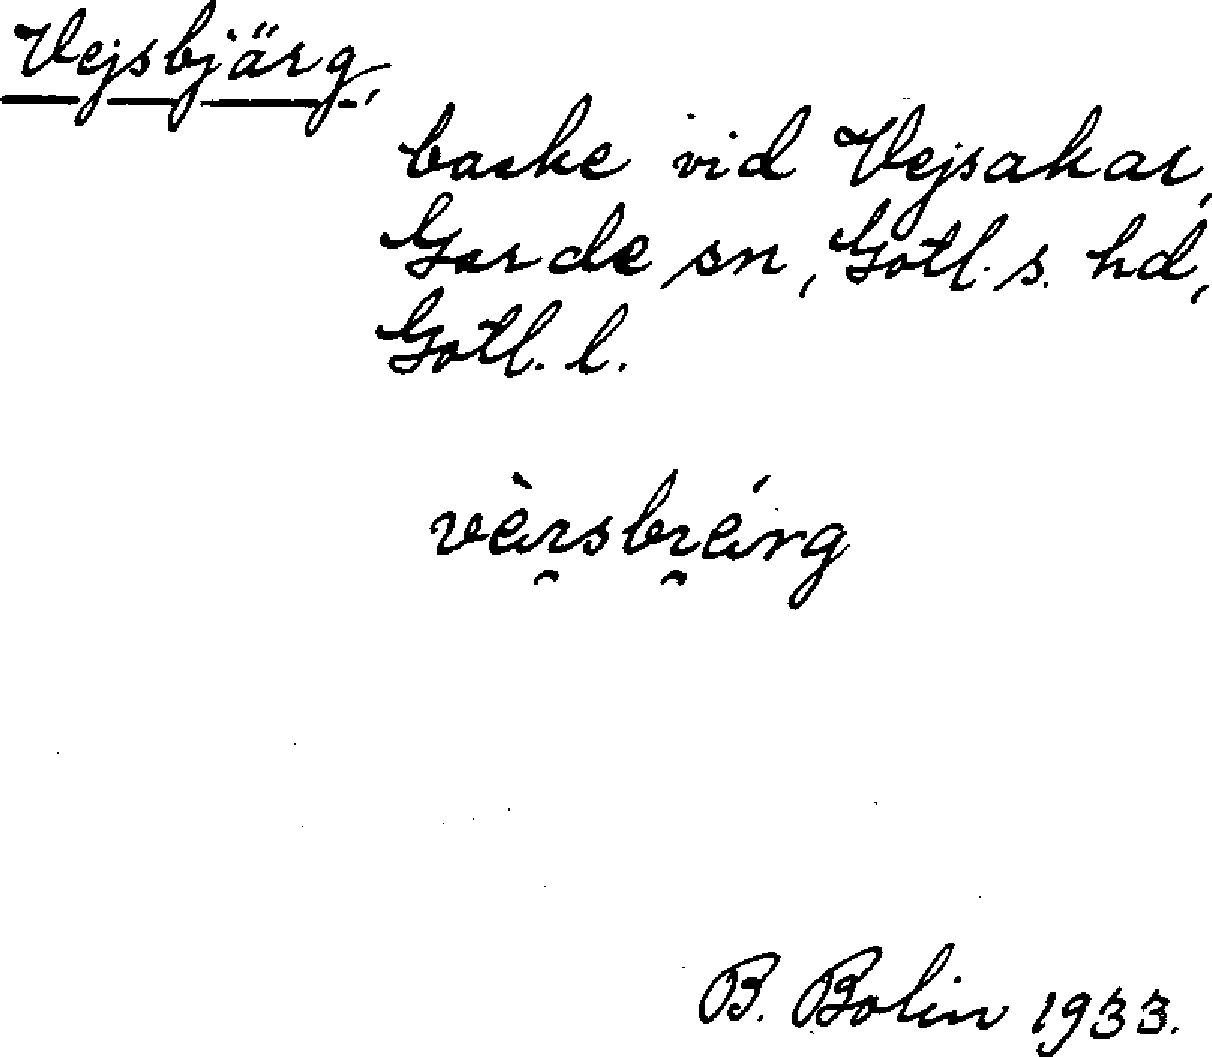 Vejsbjärg,
backe vid Vejsakar,
Garde sn, Gotl. s. hd,
Gotl. l.
B. Bolin 1933.